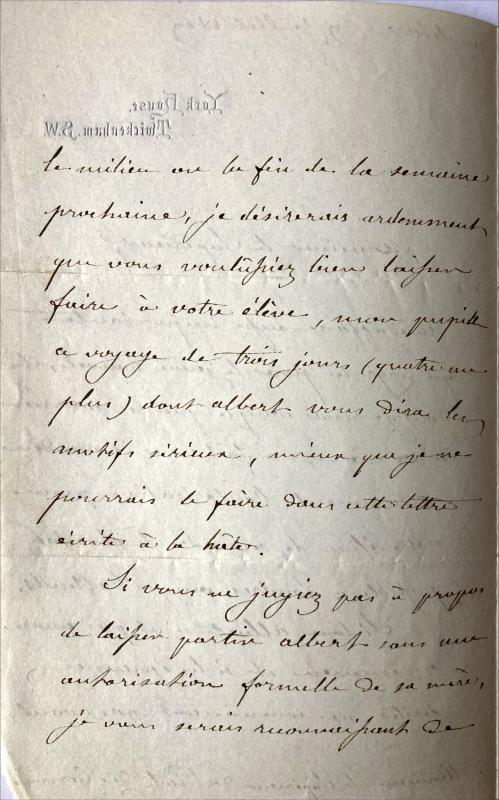 York House,
Twickenham. S.W.
le milieu ou la fin de la semaine
prochaine, je désirerais ardemment
que vous voulussiez bien laisser
faire à votre élève, mon pupille
ce voyage de trois jours (quatre au
plus) dont albert vous dira les
motifs sérieux, mieux que je ne
pourrais le faire dans cette lettre
écrite à la hâte.
Si vous ne jugiez pas à propos
de laisser partir albert sans une
autorisation formelle de sa mère,
je vous serais reconnaissant de